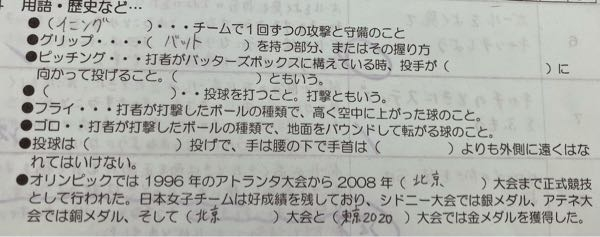 用語・歴史など…
●(イニング　　)・・・チームで1回ずつの攻撃と守備のこと
●グリップ・・・・(　バット　　)を持つ部分、またはその握り方
●ピッチング・・・打者がバッターズボックスに構えている時、投手が(　　　　　　)に
向かって投げること。(　　　　　　)ともいう。
●(　　　　　　)・・投球を打つこと。打撃ともいう。
●フライ・・・打者が打撃したボールの種類で、高く空中に上がった球のこと。
●ゴロ・・打者が打撃したボールの種類で、地面をバウンドして転がる球のこと。
●投球は(　　　　　　)投げで、手は腰の下で手首は(　　　　　　)よりも外側に遠くはな
れてはいけない。
●オリンピックでは1996年のアトランタ大会から2008年(　北京　　)大会まで正式競技
として行われた。日本女子チームは好成績を残しており、シドニー大会では銀メダル、アテネ大
会では銅メダル、そして(北京　　　)大会と(東京2020)大会では金メダルを獲得した。